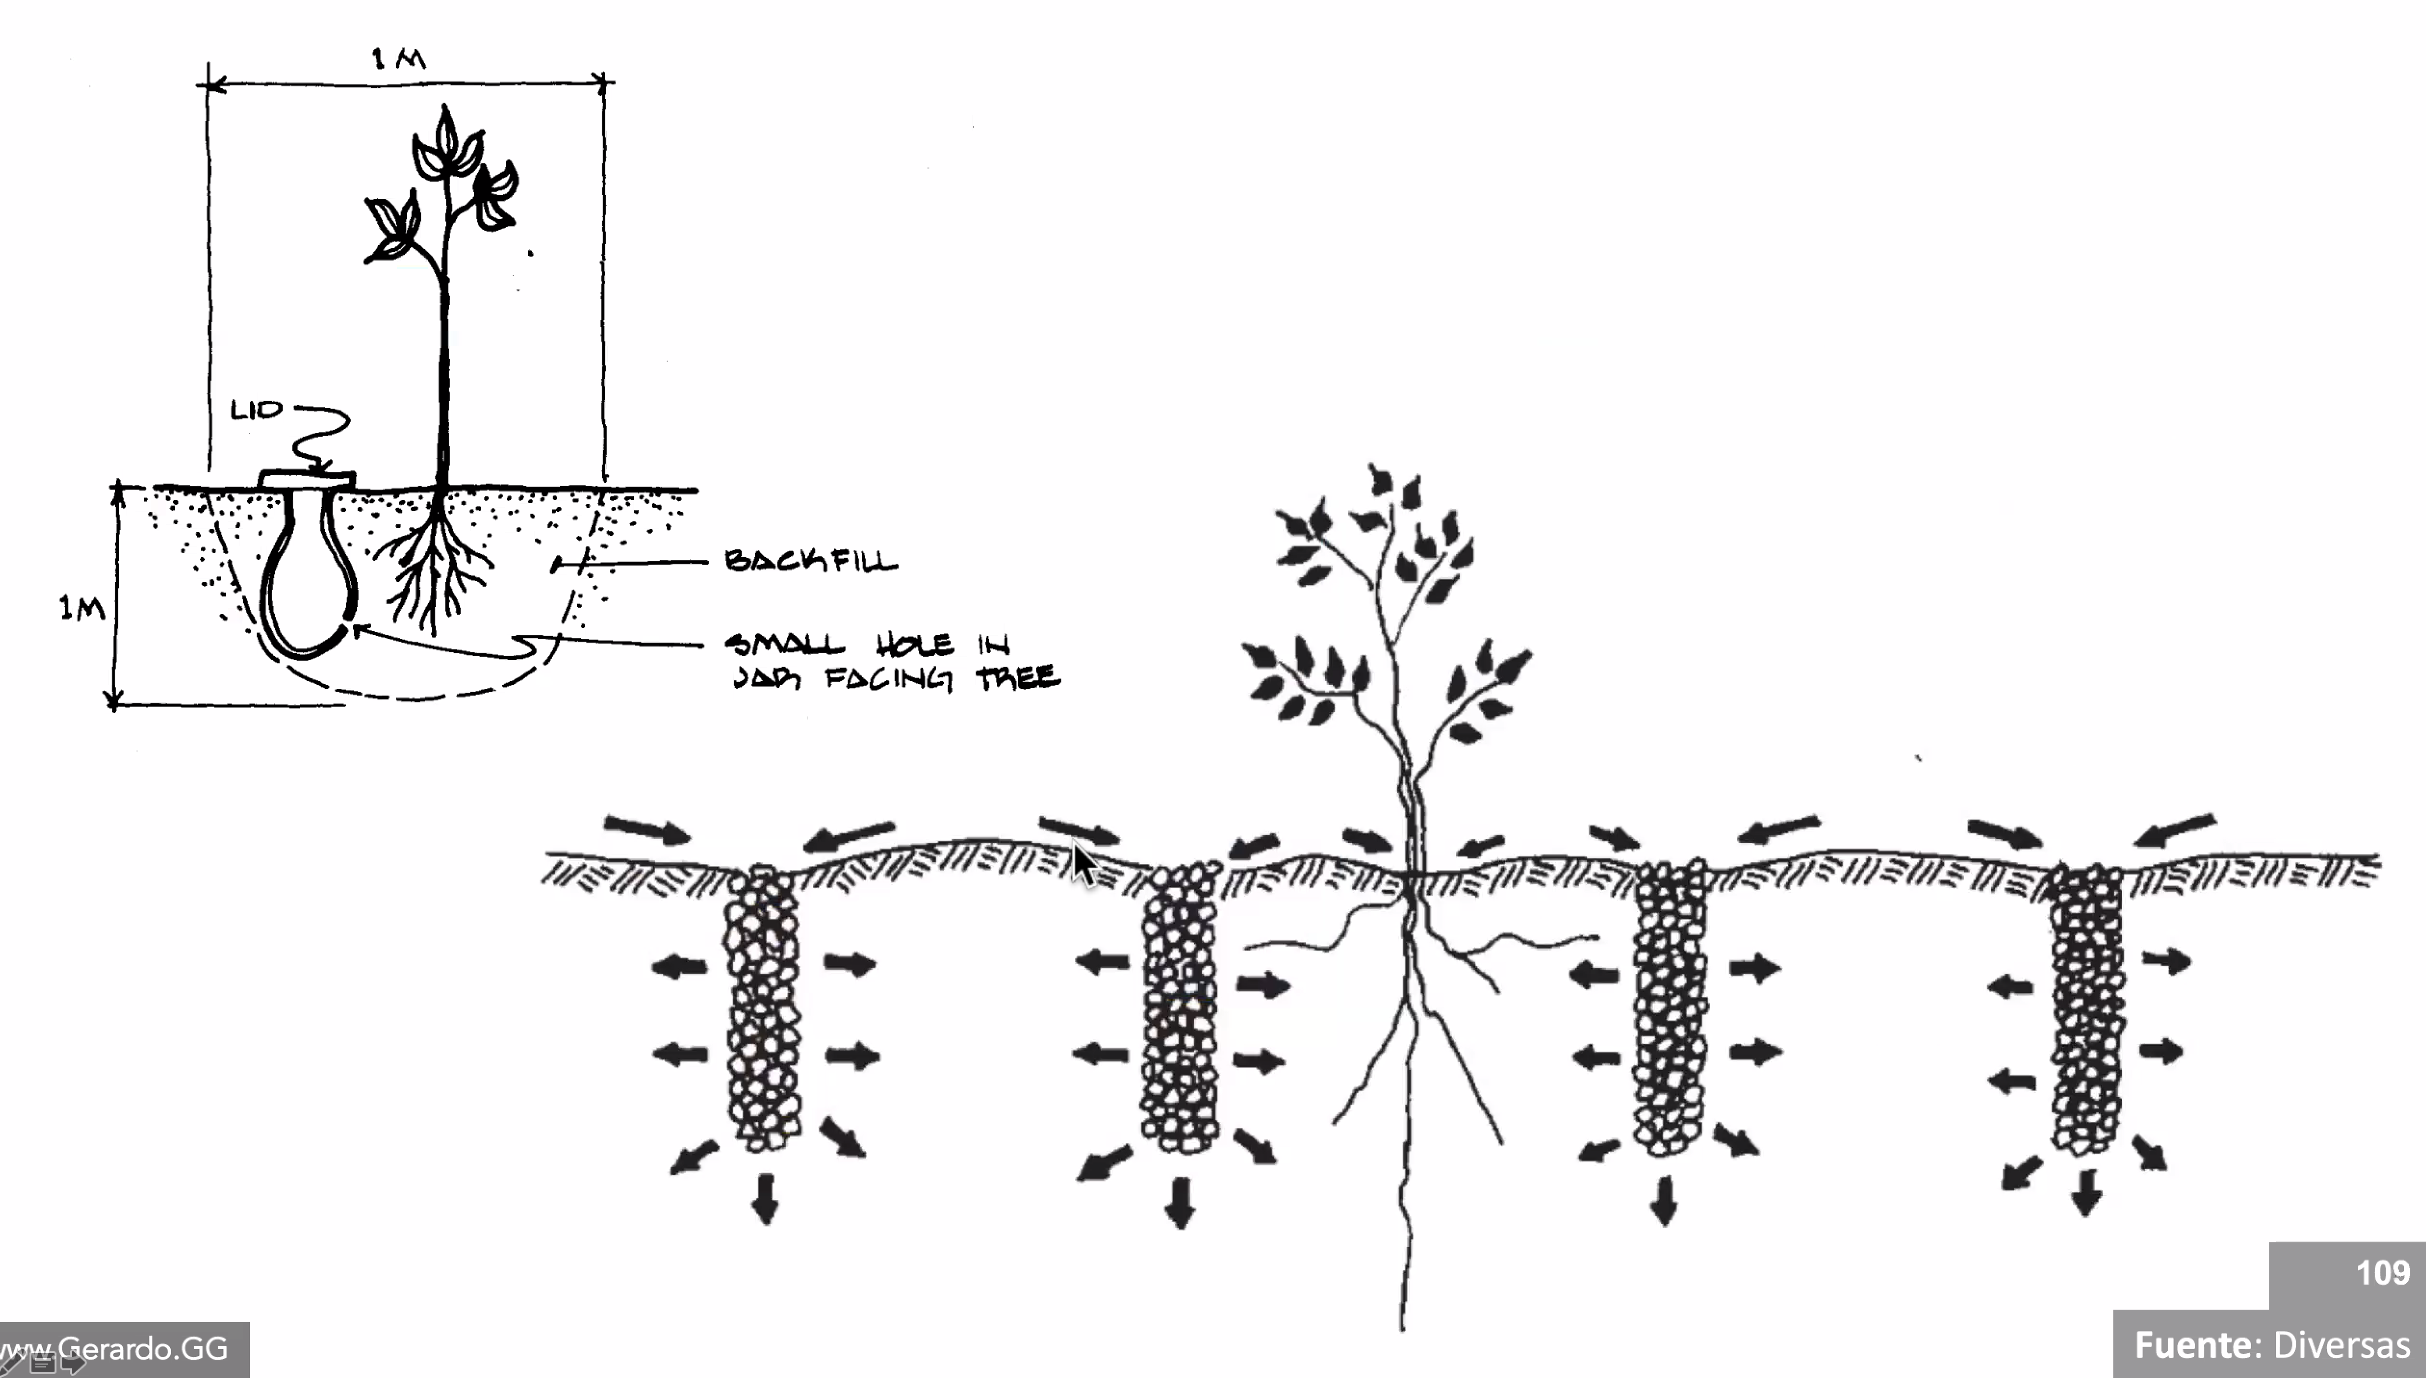 1 M
LID
BACKFILL
1M
SMALL HOLE IN
JAR FACING TREE
109
www.Gerardo.GG
Fuente: Diversas